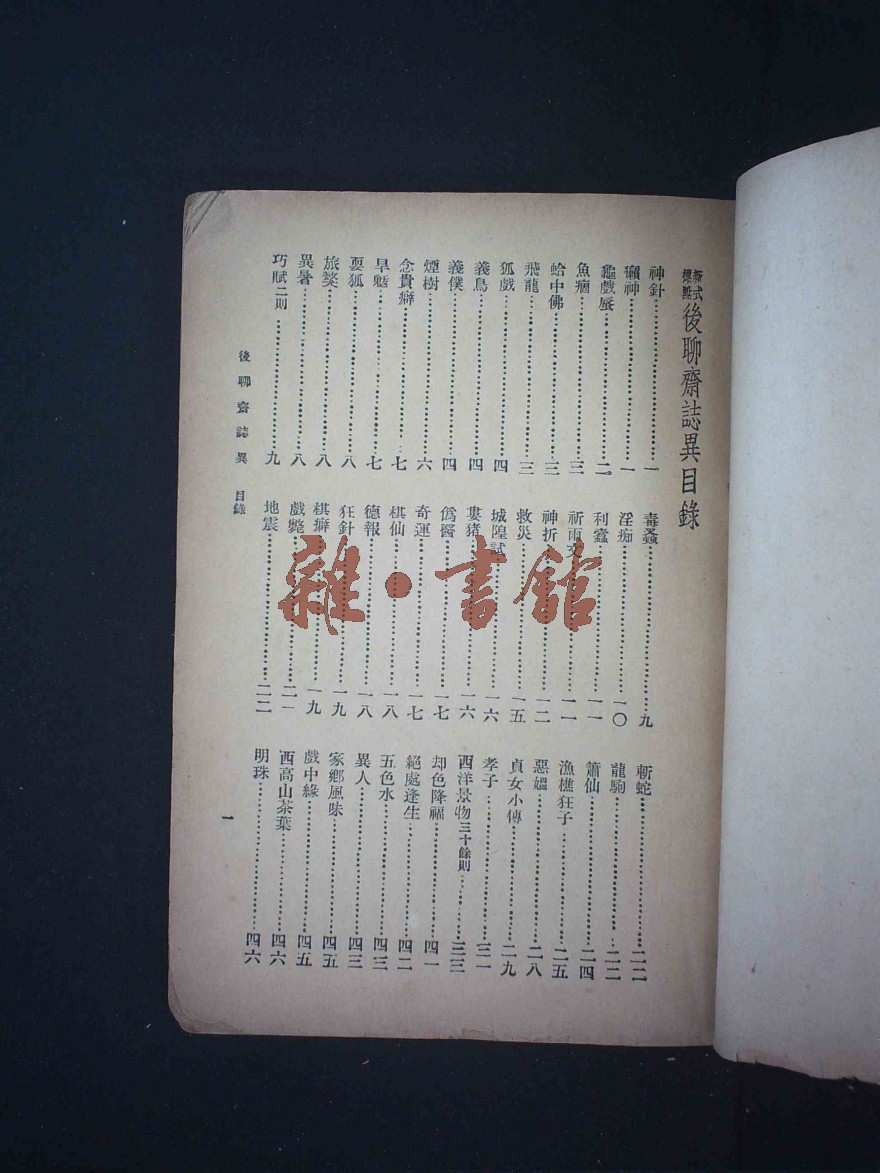 新式標點
後聊齋誌異目錄
神針……一
神……一
龜戲蜃……二
魚癇……三
蛤中佛……三
飛龍……三
狐戲……四
義鳥……四
義僕……四
煙樹……六
念貴癖……七
旱魃……七
耍狐……八
旅獒……八
異暑……八
巧賦二則……九
毒……九
淫痴……一〇
利……一一
祈雨文……一一
神折……一二
救災……一五
城隍試……一六
婁猪……一六
僞醫……一七
奇運……一七
棋仙……一八
德報……一八
狂針……一九
棋癖……一九
戲斃……二一
地震……二二
斬蛇……二二
龍駒……二二
簫仙……二四
漁樵狂子……二五
惡媼……二八
貞女小傳……二九
孝子……三一
西洋景物三十餘則……三三
却色降福……四一
絕處逢生……四二
五色水……四三
異人……四三
家鄉風味……四五
戲中緣……四五
西高山茶葉……四六
明珠……四六
後聊齋誌異 目錄
一
雜·書館